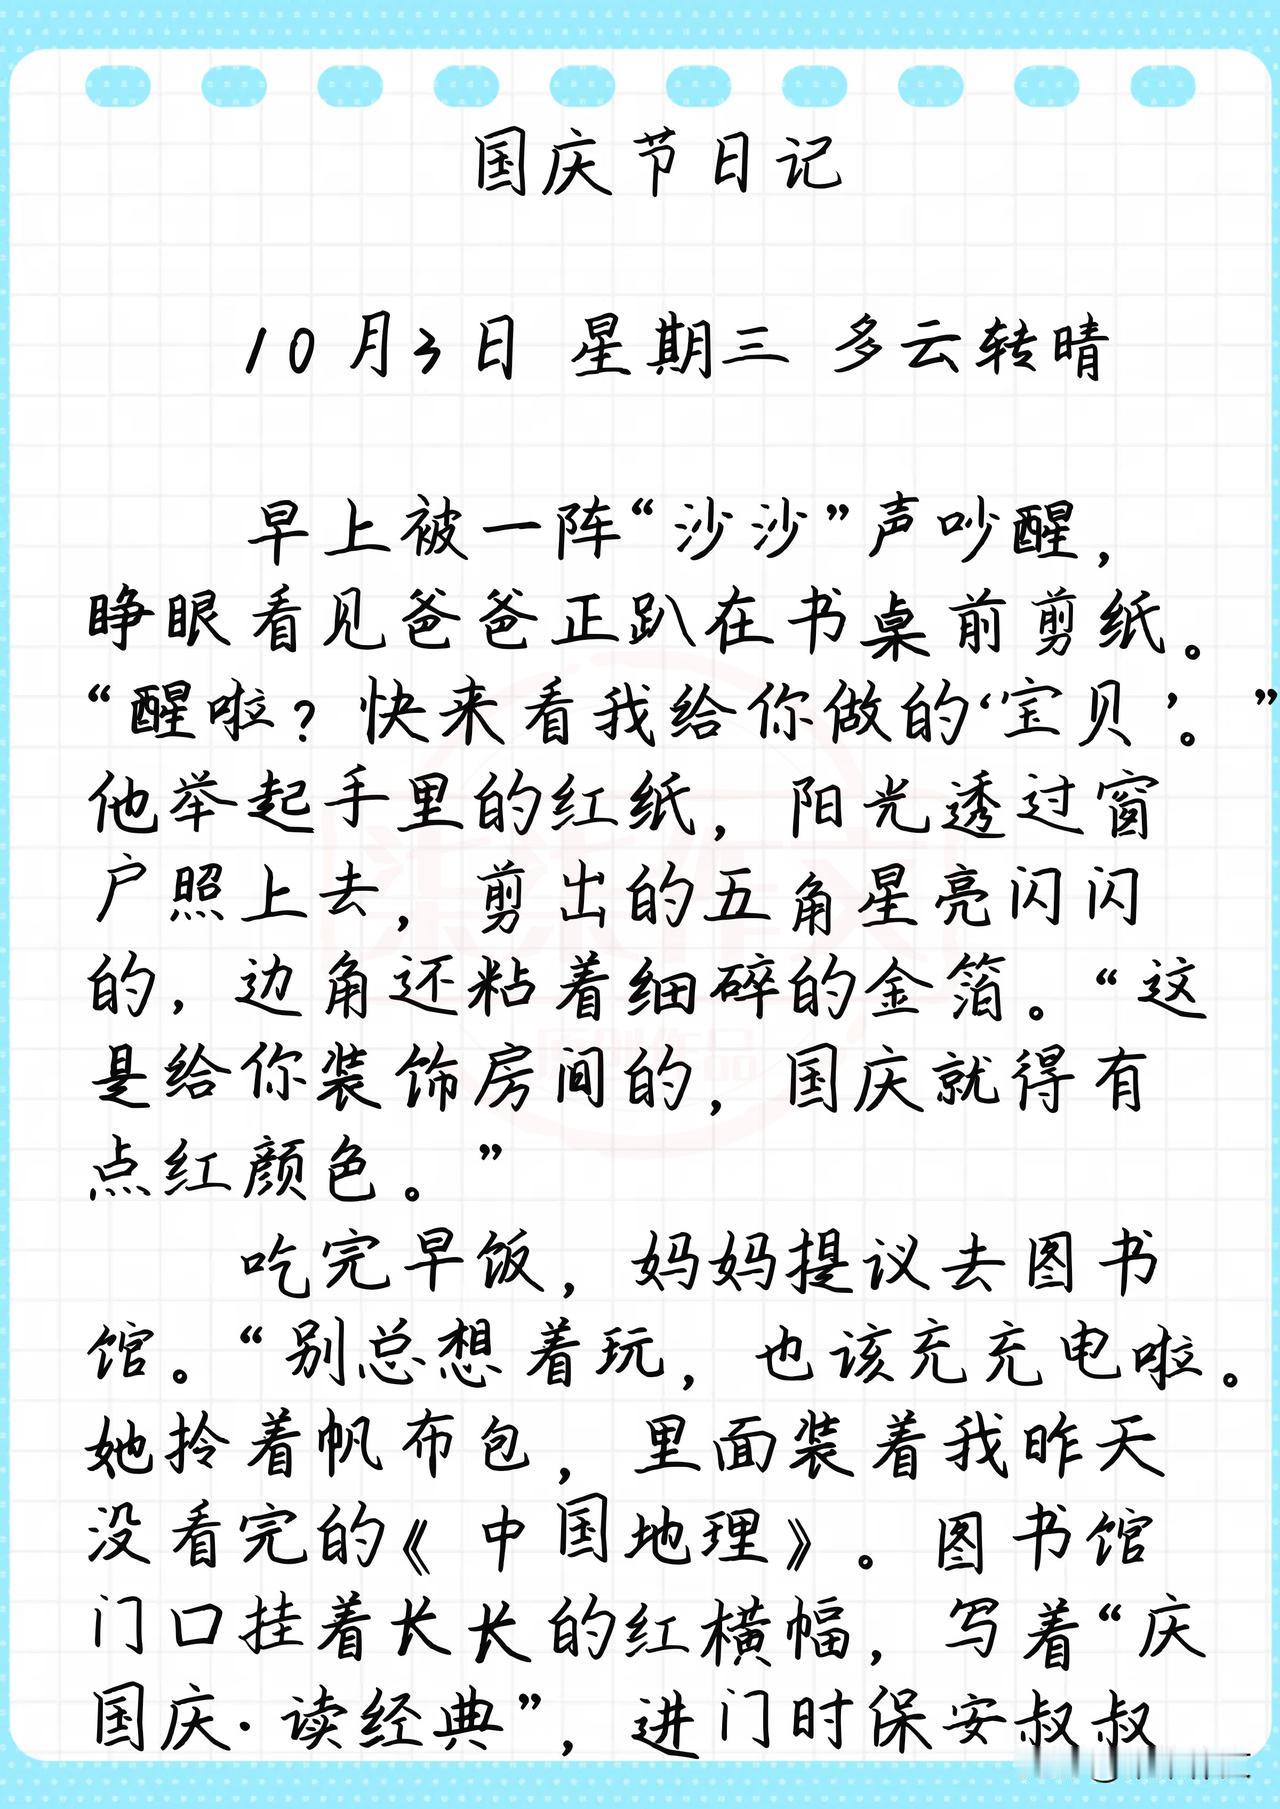 国庆节日记
10月3日 星期三 多云转晴
早上被一阵“沙沙”声吵醒，
睁眼看见爸爸正趴在书桌前剪纸。
“醒啦？快来看我给你做的‘宝贝’。”
他举起手里的红纸，阳光透过窗
户照上去，剪出的五角星亮闪闪
的，边角还粘着细碎的金箔。“这
是给你装饰房间的，国庆就得有
点红颜色。”
吃完早饭，妈妈提议去图书
馆。“别总想着玩，也该充充电啦。
她拎着帆布包，里面装着我昨天
没看完的《中国地理》。图书馆
门口挂着长长的红横幅，写着“庆
国庆·读经典”，进门时保安叔叔